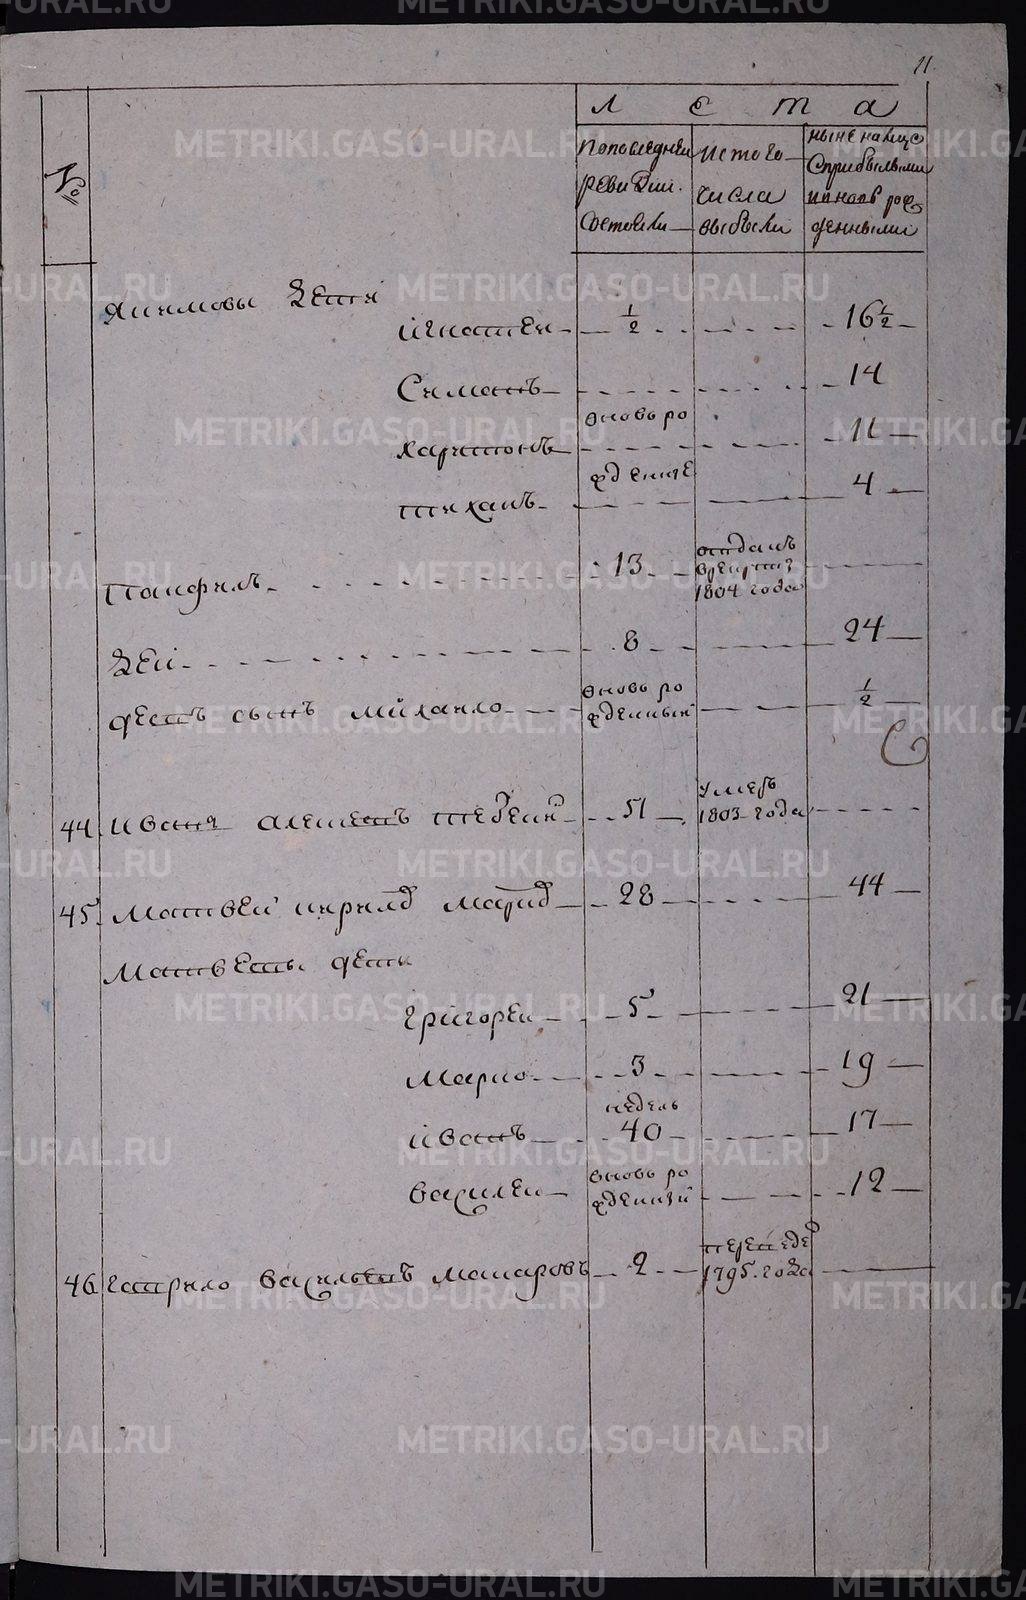 11
№
Лета
По последней ревизии состояли
Из того числа выбыли
Ныне налицо с прибылыми и вновь рожденными
Якимовы дети
Игнатей 1/2 16 1/2
Симанъ 14
Харитонъ вновь ро 11
Тиханъ жденые 4
Панфилъ 13 отданъ в рекруты 1804 года
8 24
сынъ Михайло вновь рожденный 1/2
44 Ивана 51 умеръ 1803 года
45 Матвей 28 44
Матвеевы дети
Григорей 5 21
Марко 3 19
Иванъ недель 40 17
Василей вновь рожденный 12
46 Гаврило Васильевъ Макаровъ 2 1795 года
METRIKI.GASO-URAL.RU